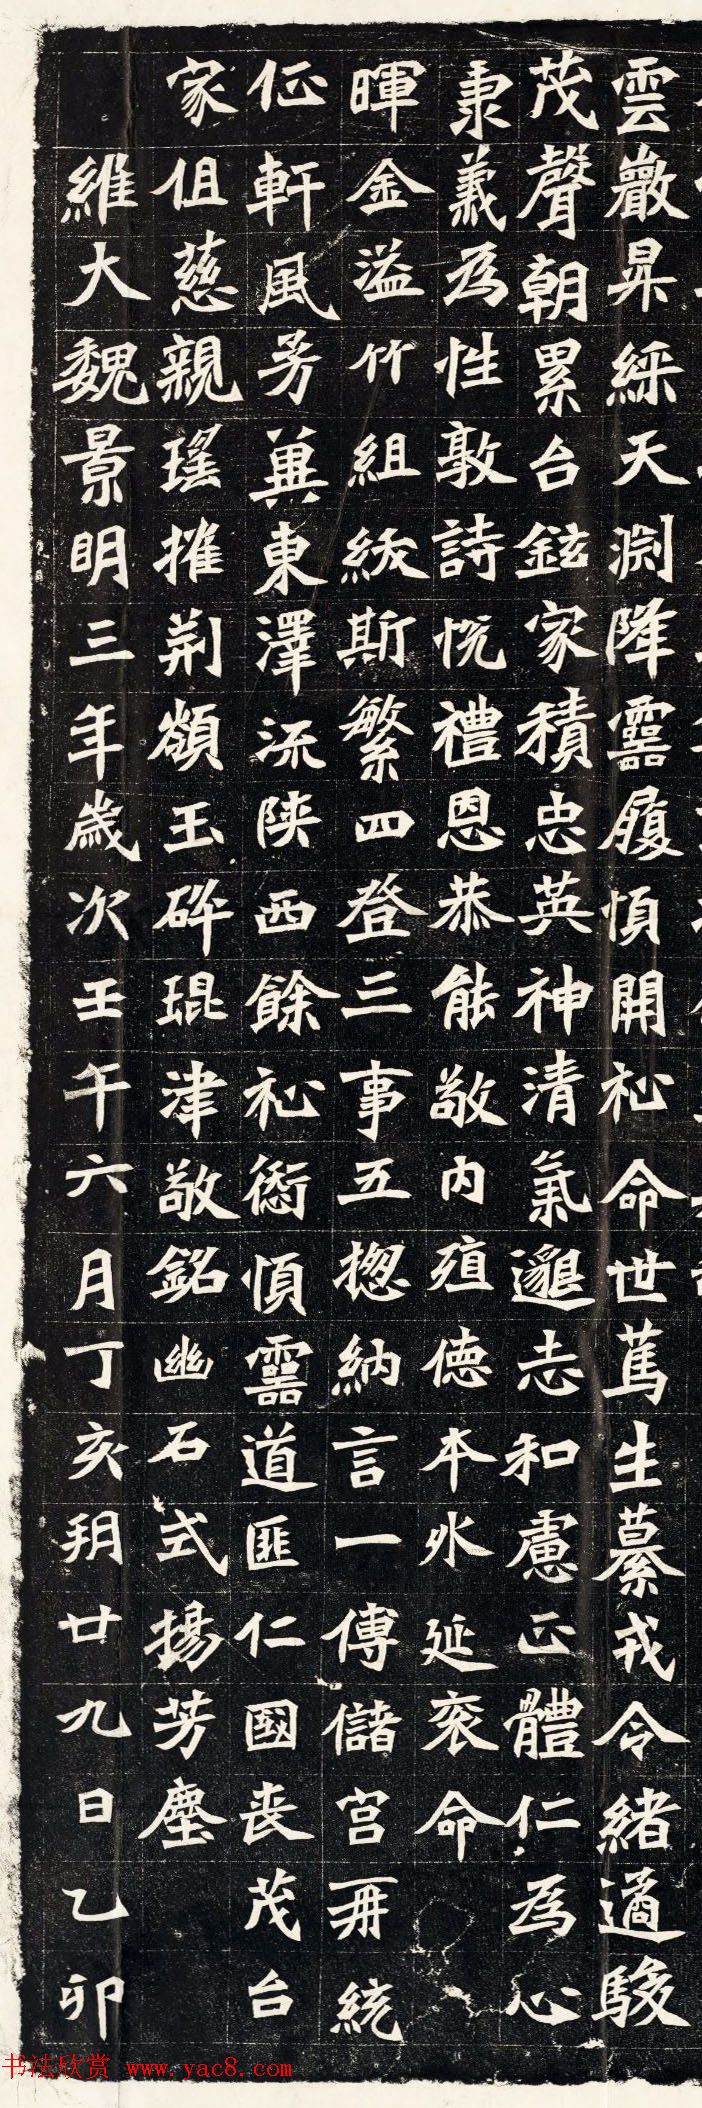 雲巖昇綵天淵降靈履順開祉命世篤生纂戎令緒遹駿
茂聲朝累台鉉家積忠英神清氣邈志和慮正體仁為心
秉義為性敦詩悅禮恩恭能敬內殖德本外延衮命
暉金溢竹組紱斯繁四登三事五揔納言一傅儲宮再統
征軒風芳冀東澤流陝西餘祉愆順靈道匪仁國喪茂台
家徂慈親瑤摧荊巘玉碎琨津敬銘幽石式揚芳塵
維大魏景明三年歲次壬午六月丁亥朔廿九日乙卯
书法欣赏 www.yac8.com